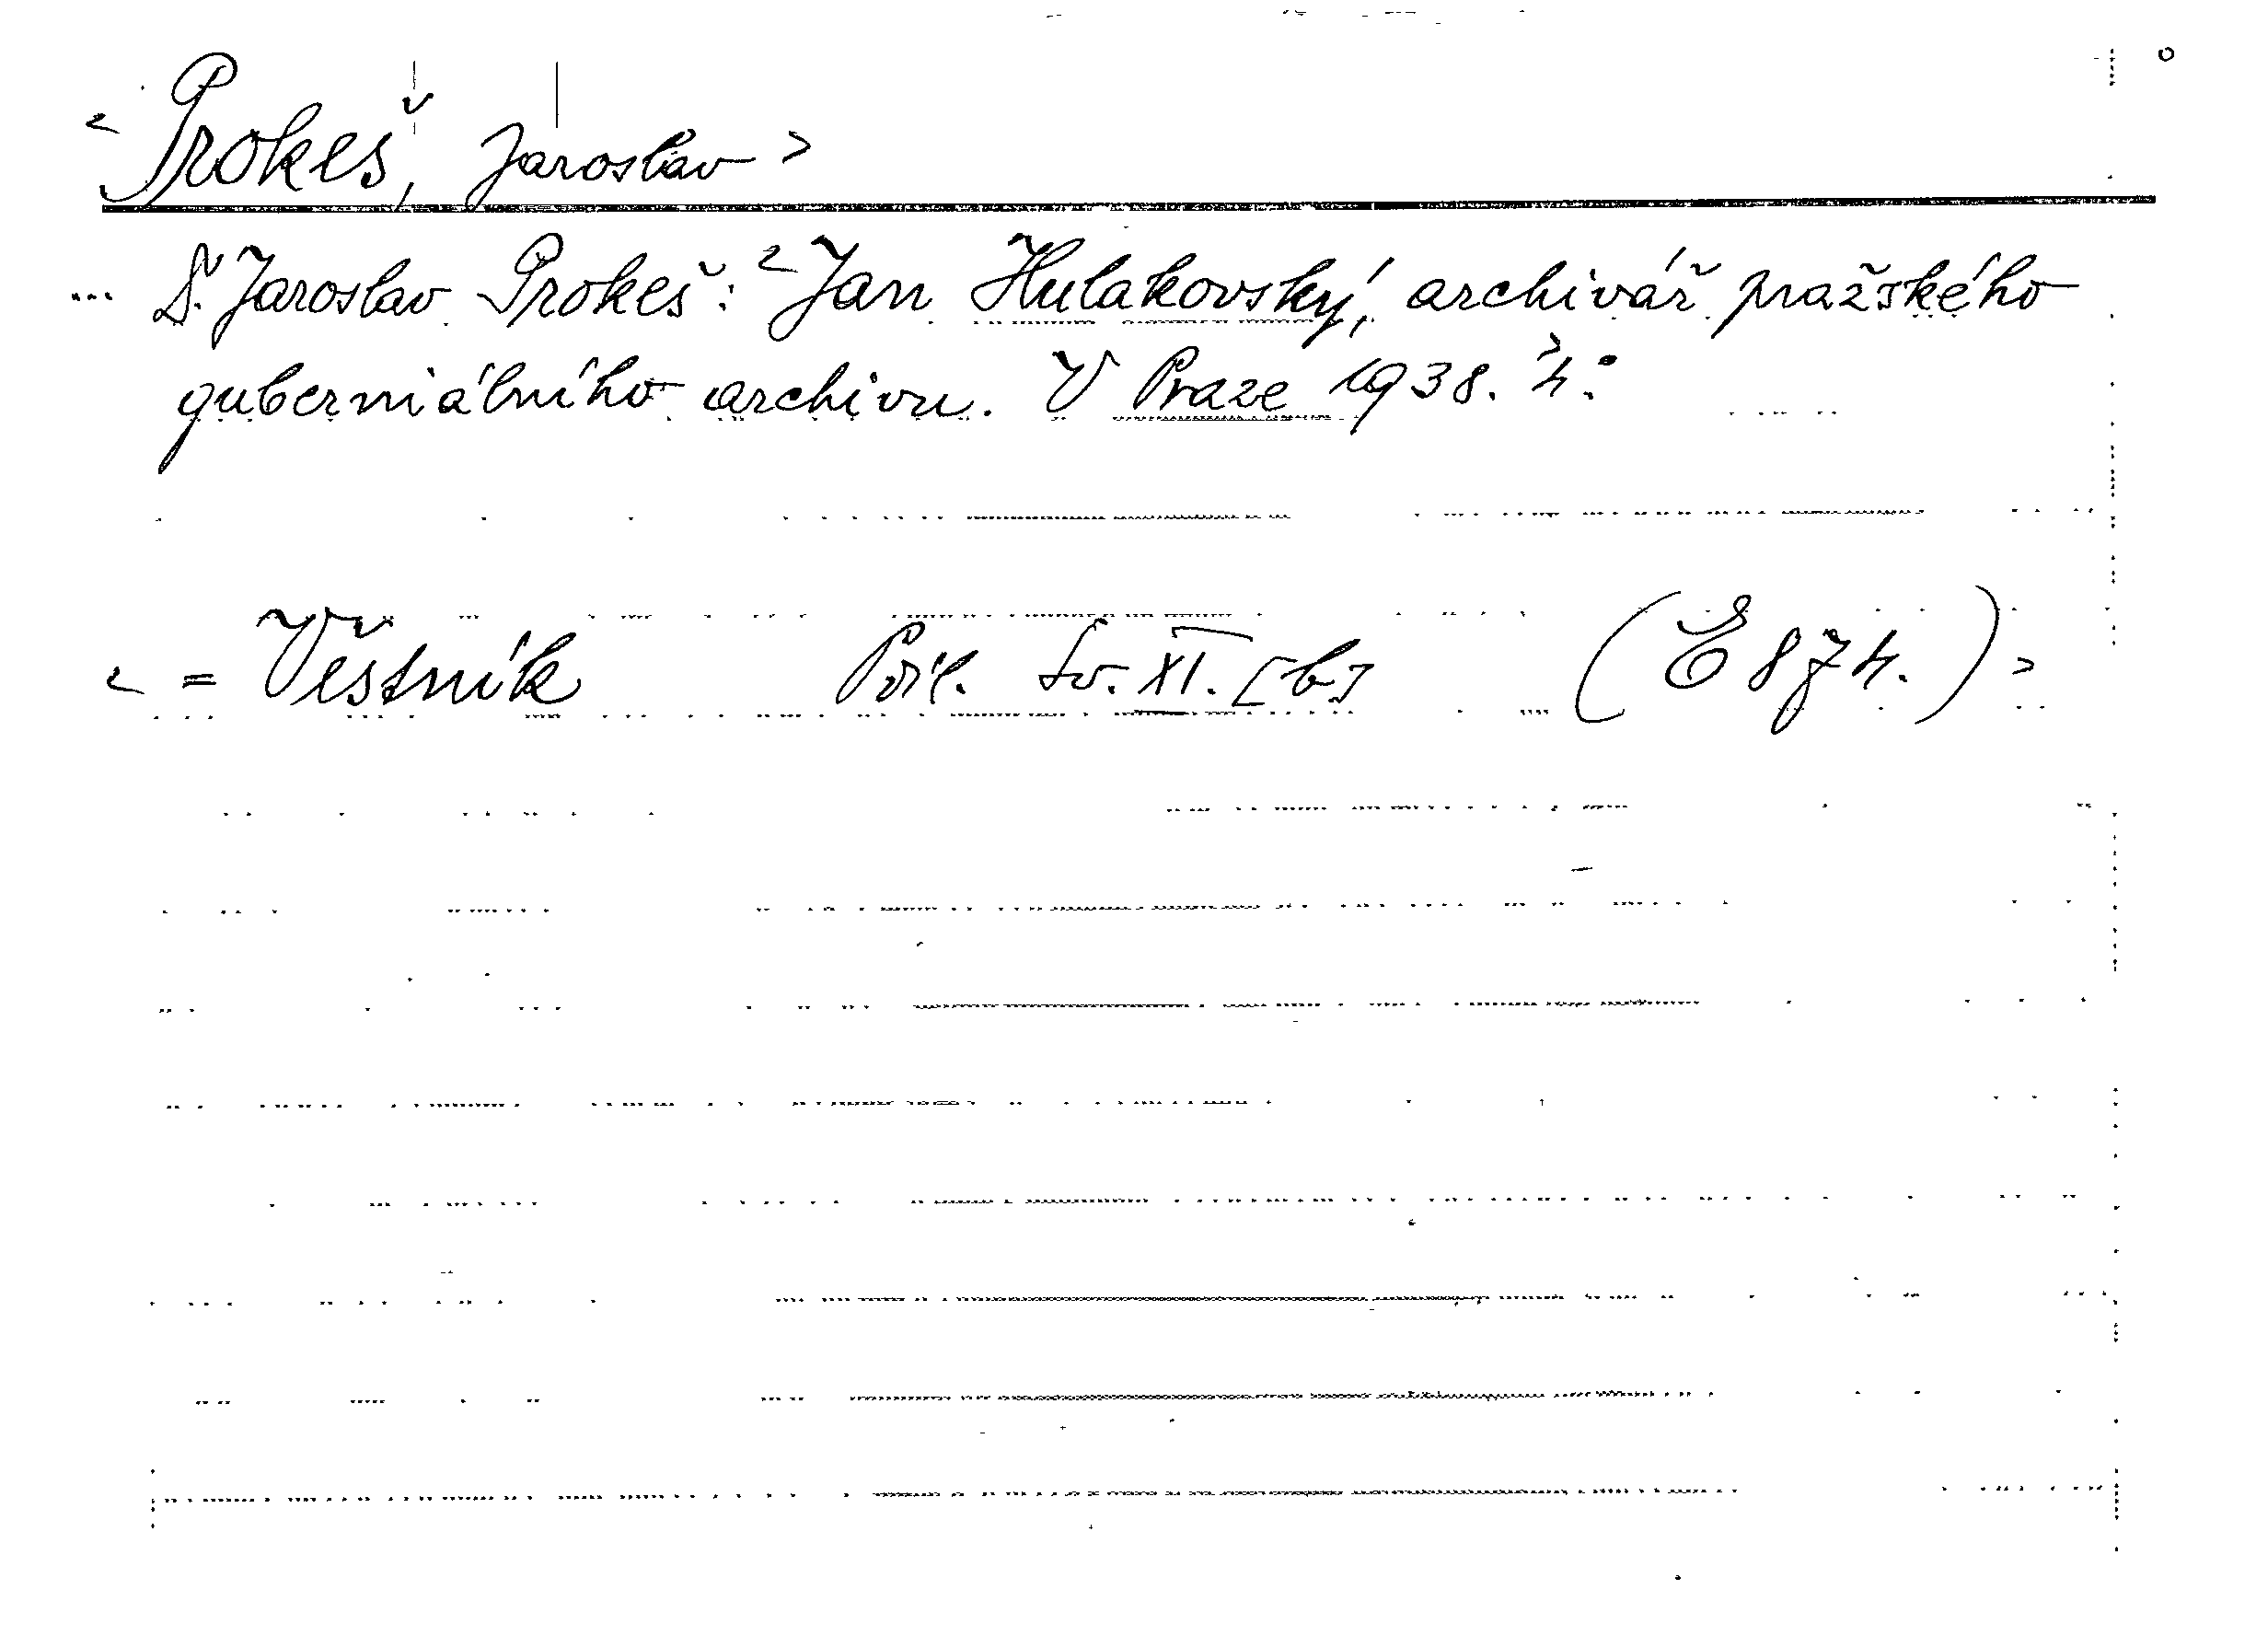 < Prokeš, Jaroslav >
... Dr. Jaroslav Prokeš: < Jan Hulakovský, archivář pražského
guberniálního archivu. V Praze 1938. > 4°
< = Věstník Příl. Sv. XI. [b] (E 874.) >